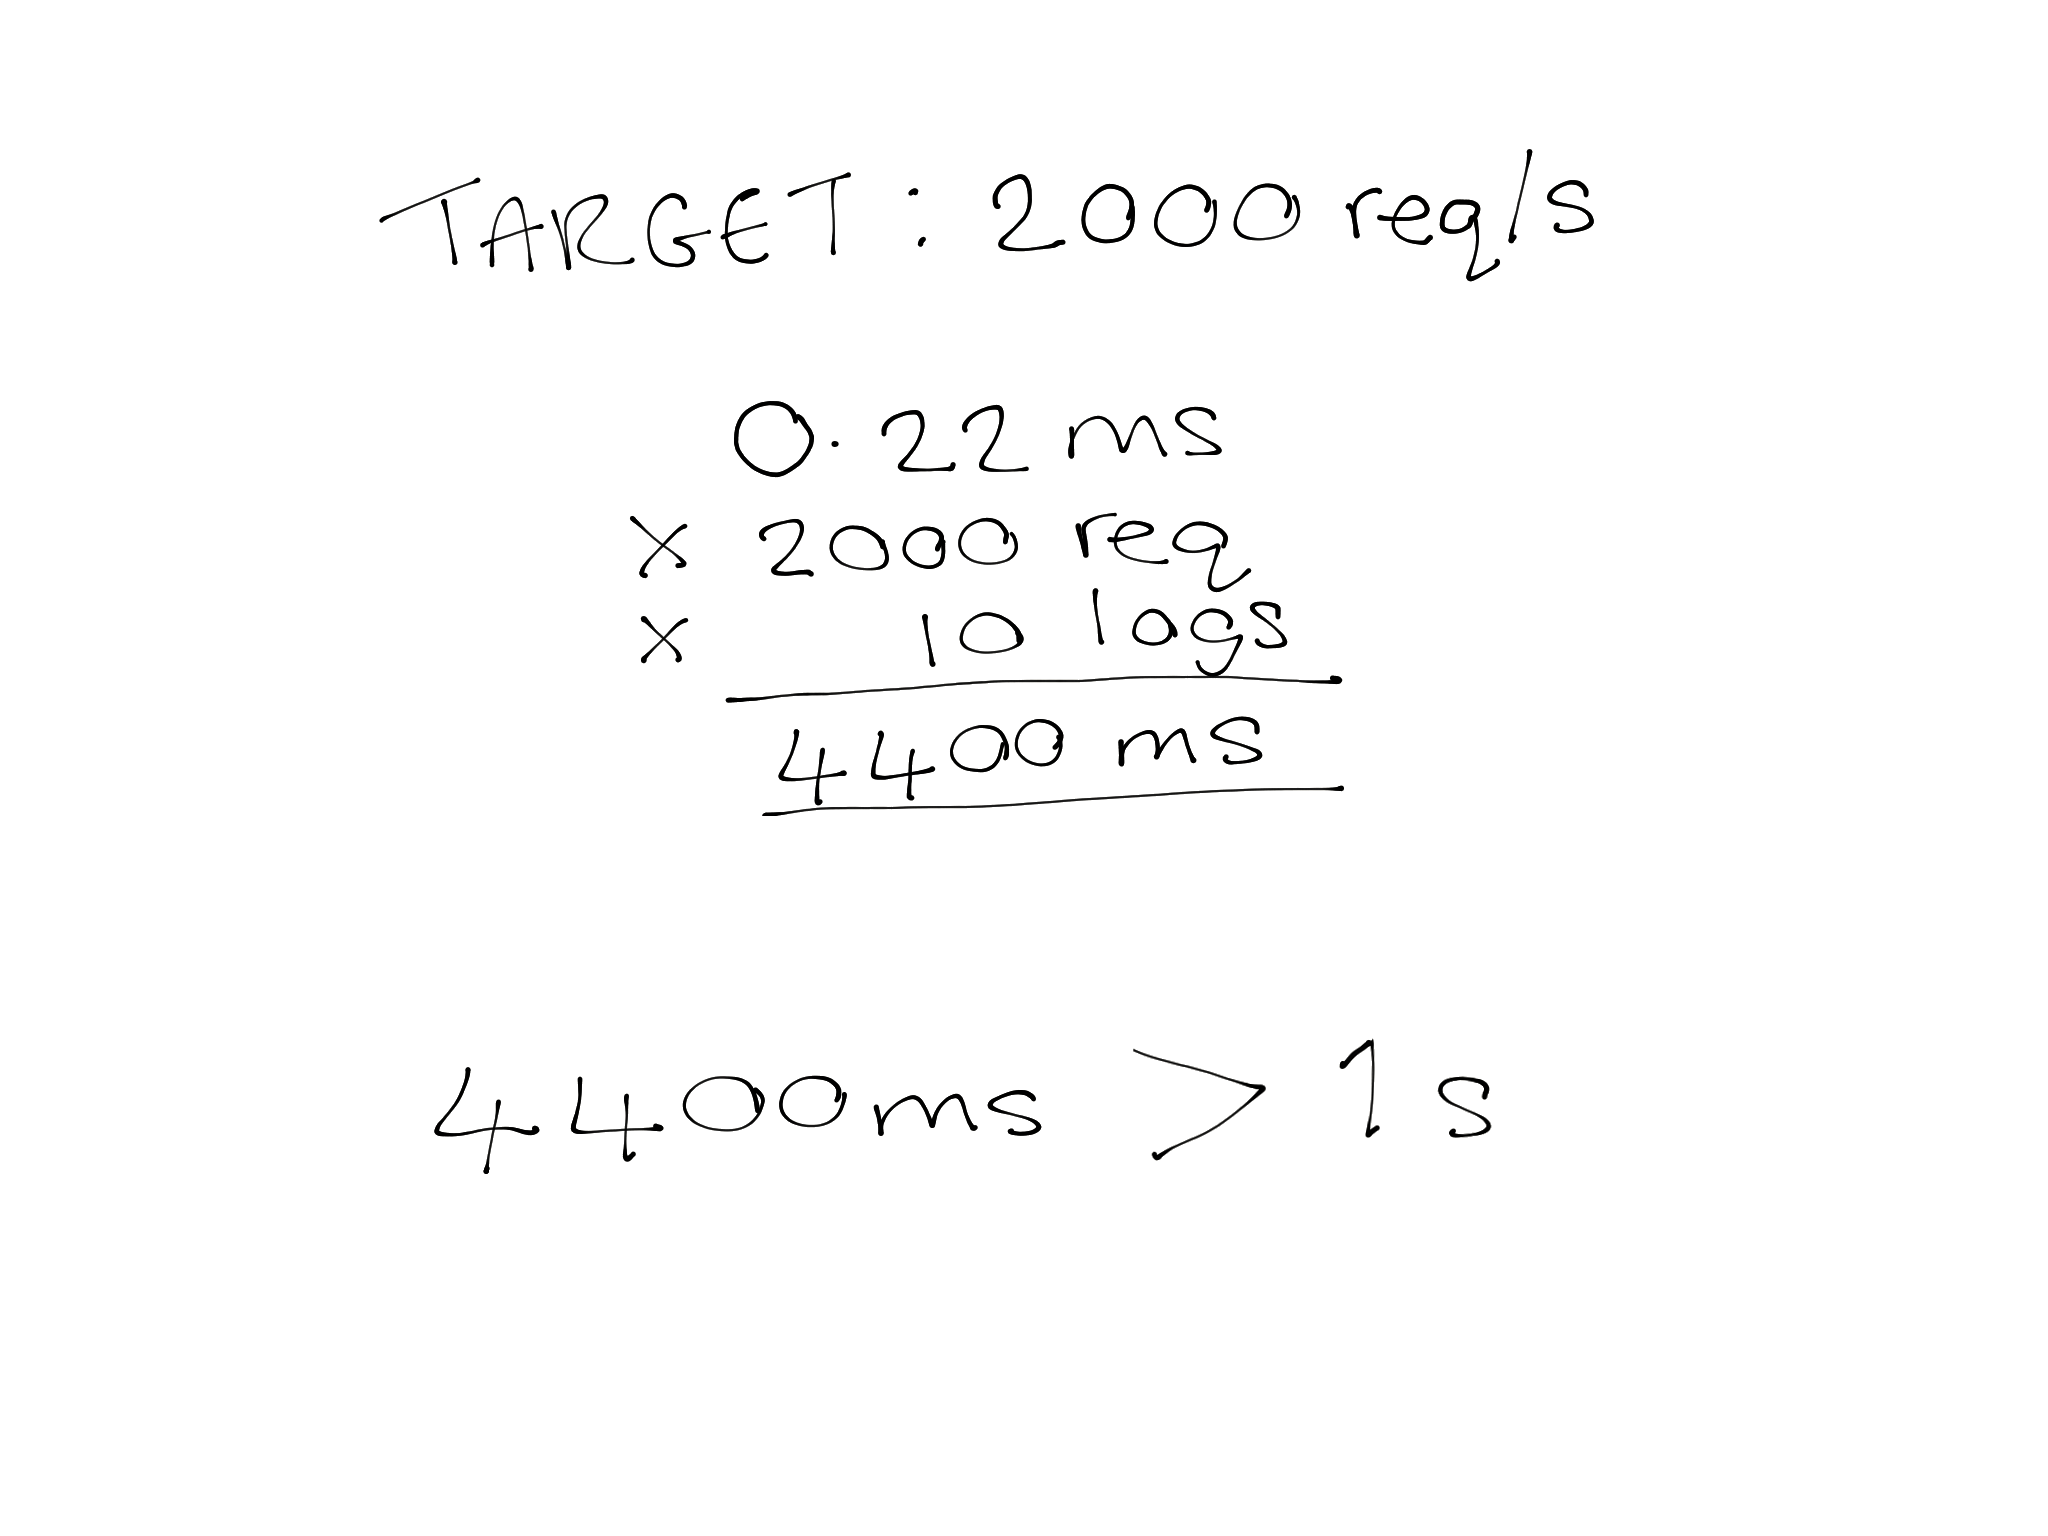 TARGET: 2000 req/s
0.22 ms
× 2000 req
× 10 logs
4400 ms
4400ms > 1s